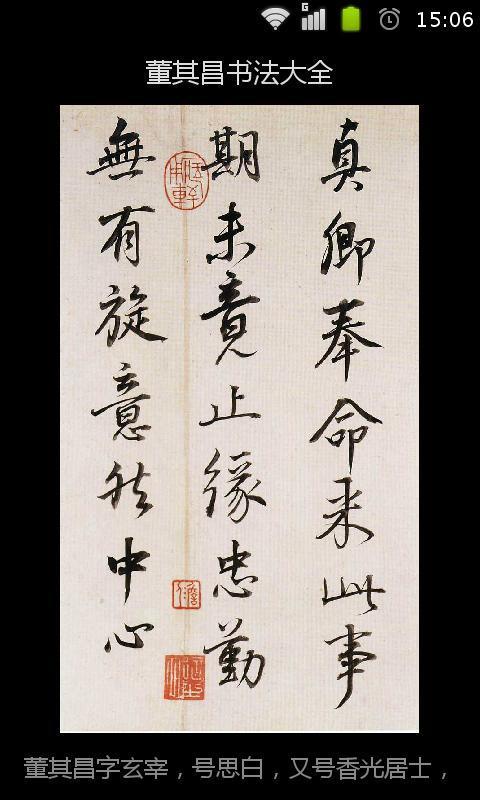 15:06
董其昌书法大全
真卿奉命来此事
期未竟止缘忠勤
無有旋意然中心
董其昌字玄宰，号思白，又号香光居士，